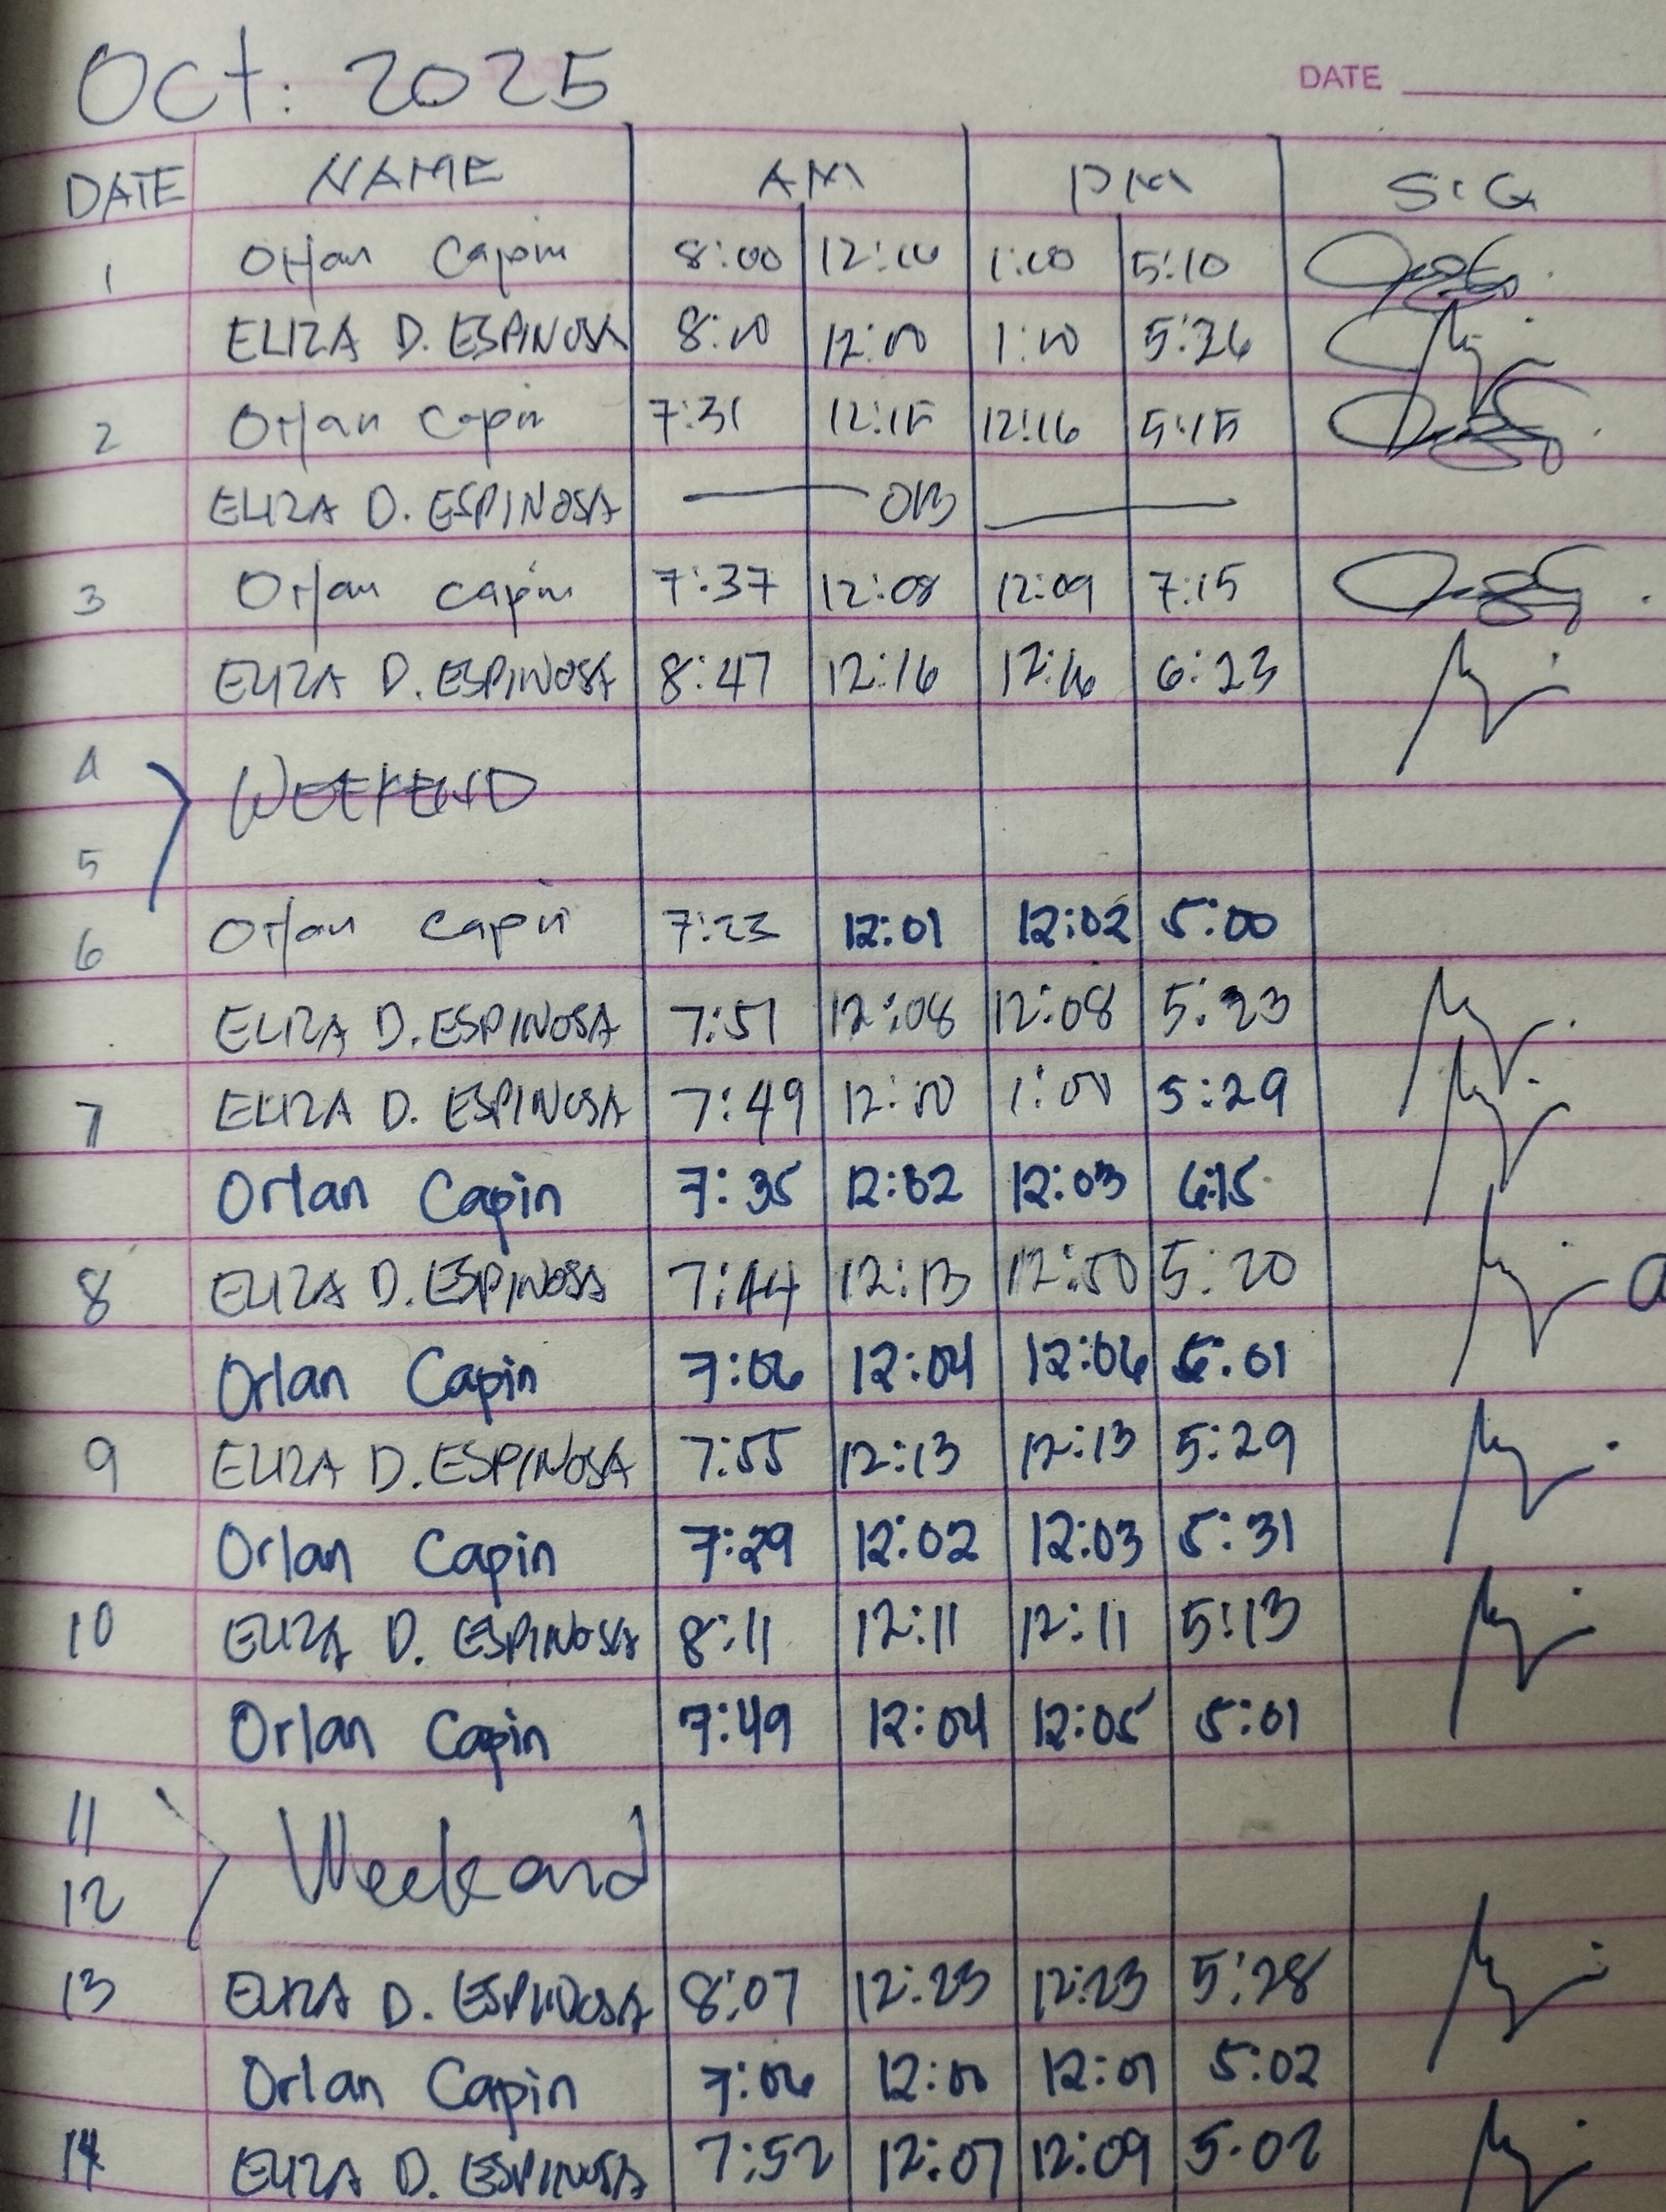 Oct. 2025
DATE
DATE NAME AM PM SIG
1 Orlan Capin 8:00 12:10 1:00 5:10
ELIZA D. ESPINOSA 8:00 12:00 1:00 5:26
2 Orlan Capin 7:31 12:15 12:16 5:15
ELIZA D. ESPINOSA OB
3 Orlan Capin 7:37 12:08 12:09 7:15
ELIZA D. ESPINOSA 8:47 12:16 12:16 6:23
4
WEEKEND
5
6 Orlan Capin 7:23 12:01 12:02 5:00
ELIZA D. ESPINOSA 7:51 12:08 12:08 5:23
7 ELIZA D. ESPINOSA 7:49 12:00 1:00 5:29
Orlan Capin 7:35 12:02 12:03 6:15
8 ELIZA D. ESPINOSA 7:44 12:13 12:50 5:20
Orlan Capin 7:06 12:04 12:06 5:01
9 ELIZA D. ESPINOSA 7:55 12:13 12:13 5:29
Orlan Capin 7:29 12:02 12:03 5:31
10 ELIZA D. ESPINOSA 8:11 12:11 12:11 5:13
Orlan Capin 7:49 12:04 12:05 5:01
11
Weekend
12
13 ELIZA D. ESPINOSA 8:07 12:23 12:23 5:28
Orlan Capin 7:06 12:00 12:01 5:02
14 ELIZA D. ESPINOSA 7:52 12:07 12:09 5:02